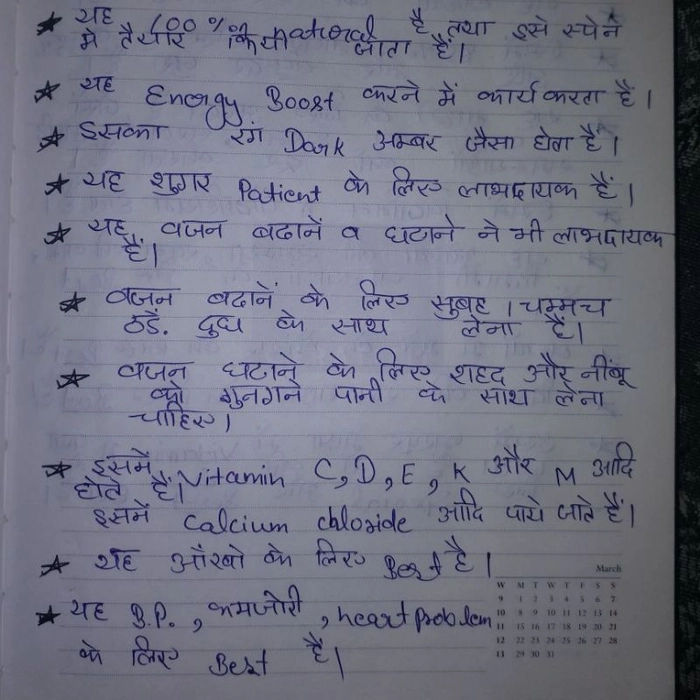 ★ यह 100 % natural है तथा इसे स्पेन
में तैयार किया जाता है।
★ यह Energy Boost करने में कार्य करता है।
★ इसका रंग Dark अम्बर जैसा होता है।
★ यह शुगर Patient के लिए लाभदायक है।
★ यह वजन बढानें व घटाने ने भी लाभदायक
है।
★ वजन बढानें के लिए सुबह 1 चम्मच
ठडें. दुध के साथ लेना है।
★ वजन घटाने के लिए शहद और नींबू
को गुनगने पानी के साथ लेना
चाहिए।
★ इसमें Vitamin C, D, E, K और M आदि
होते है।
इसमें Calcium chloride आदि पाये जाते है।
★ यह आँखो के लिए Best है।
★ यह B.P., कमजोरी, heart problem
के लिए Best है।
March
W M T W T F S S
9 1 2 3 4 5 6 7
10 8 9 10 11 12 13 14
11 15 16 17 18 19 20 21
12 22 23 24 25 26 27 28
13 29 30 31